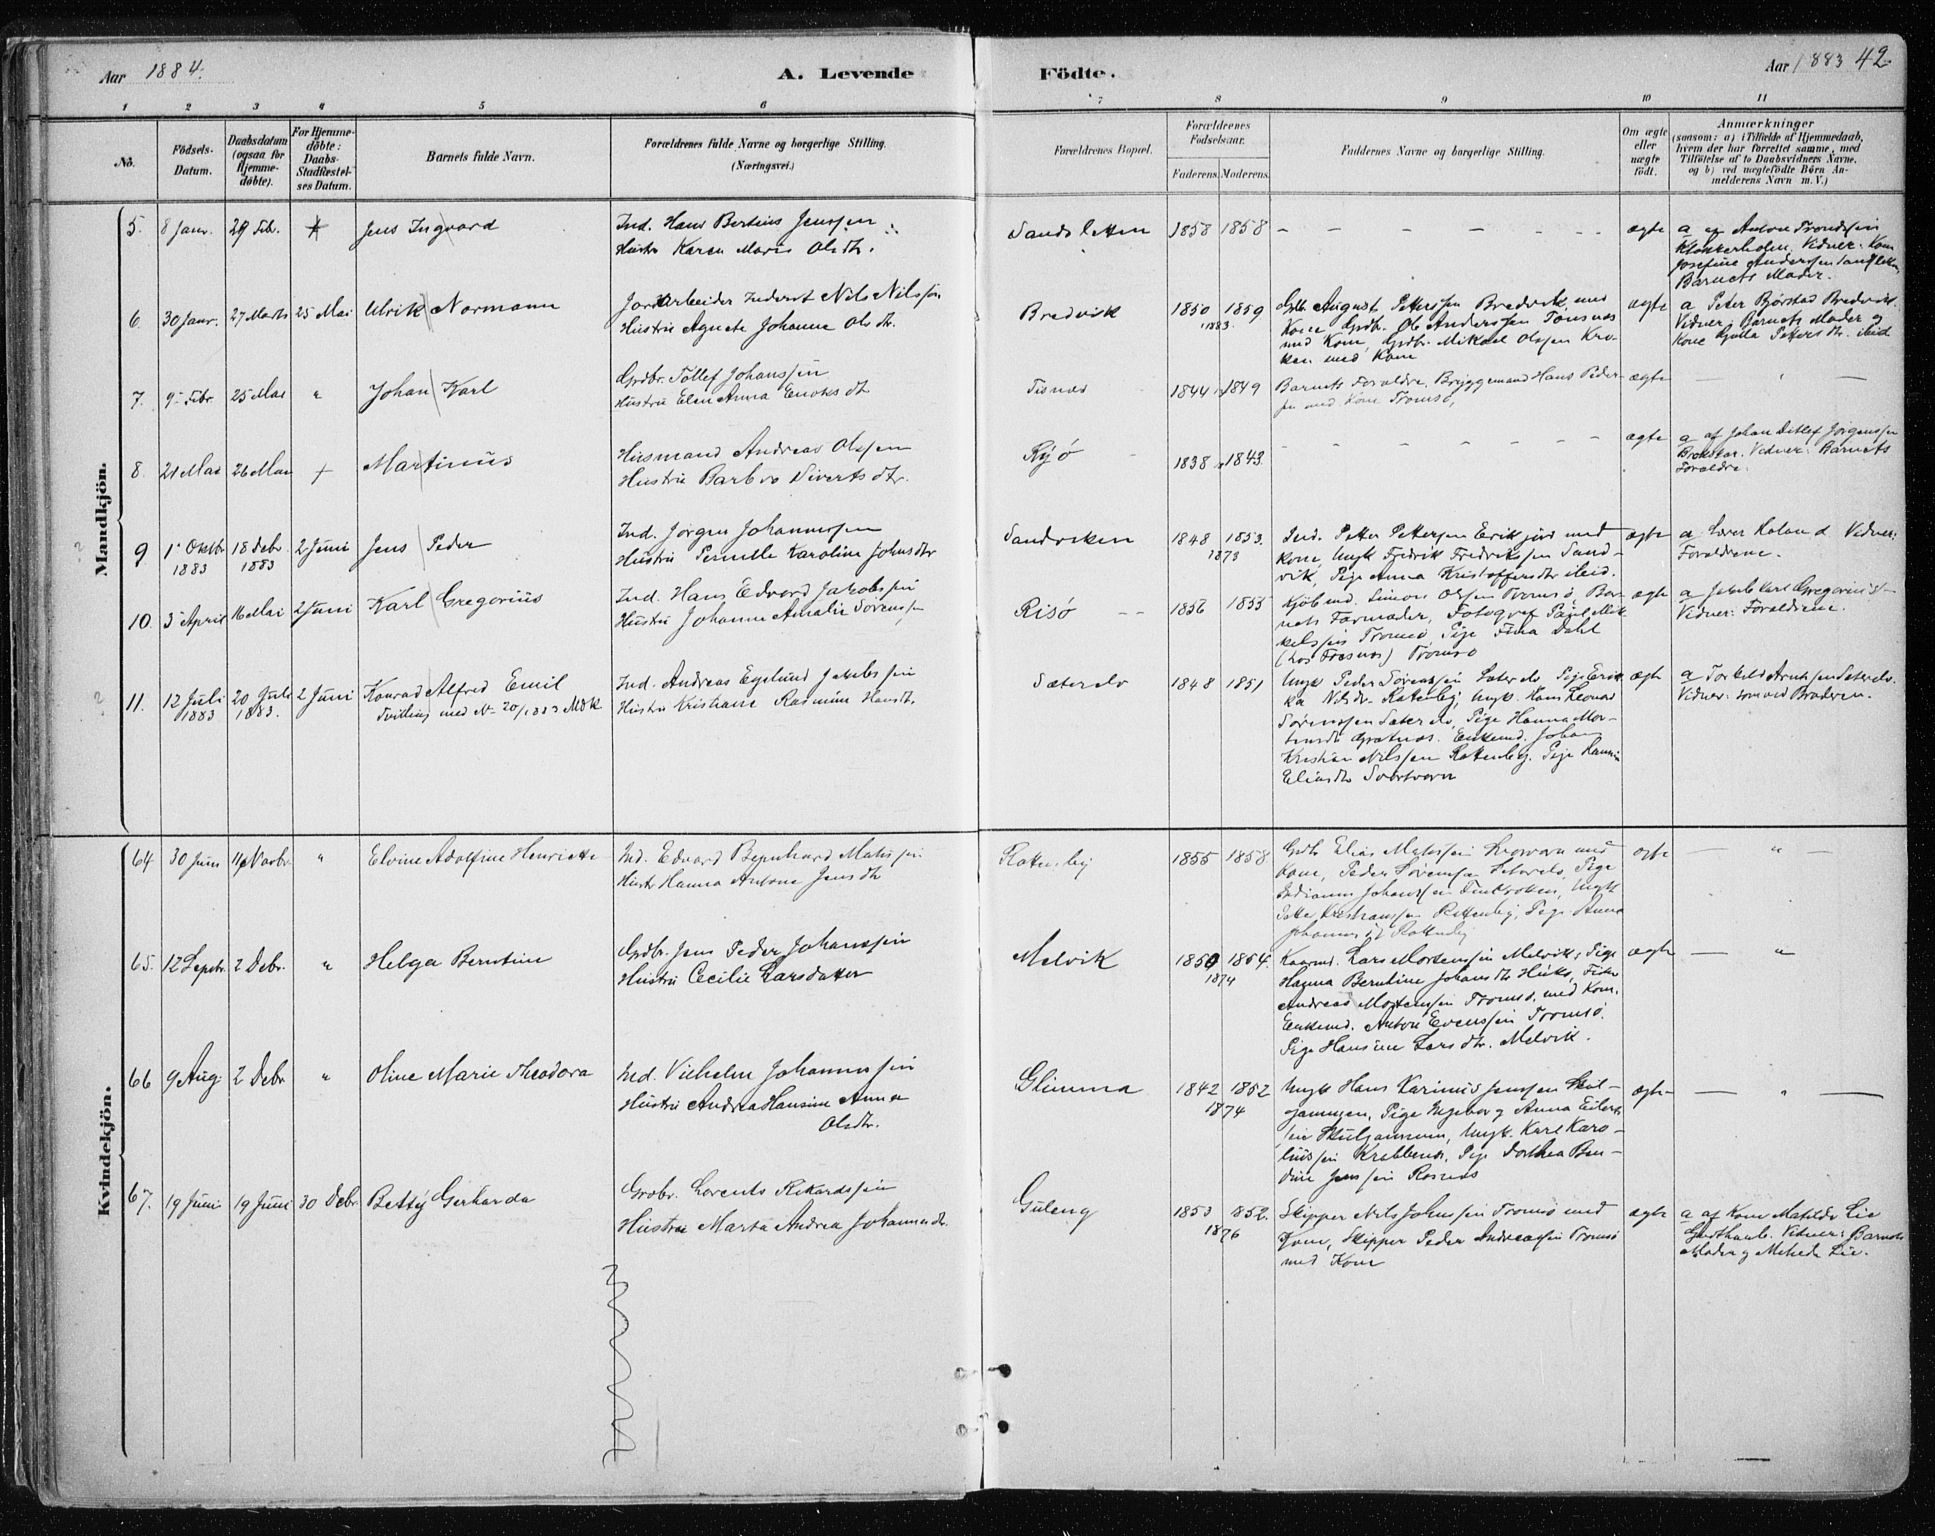 Aar 1884.
A. Levende
Födte.
Aar 1883 42
1 2 3 4 5 6 7 8 9 10 11
No.
Födsels-
Datum.
Daabsdatum
(ogsaa for
Hjemme-
döbte).
For Hjemme-
döbte:
Daabs-
Stadfæstel-
ses Datum.
Barnets fulde Navn.
Forældrenes fulde Navne og borgerlige Stilling.
(Næringsvei.)
Forældrenes Bopæl.
Forældrenes
Födselsaar.
Faderens. Moderens.
Faddernes Navne og borgerlige Stilling.
Om ægte
eller
uægte
födt.
Anmærkninger
(saasom: a) i Tilfælde af Hjemmedaab,
hvem der har forrettet samme, med
Tilföielse af to Daabsvidners Navne,
og b) ved uægtefödte Börn An-
melderens Navn m. V.)
Mandkjön.
5. 8 Janr. 29 Febr. Jens Ingvard
Ind. Hans Bertius Jenssen
Hustru Karen Marie Olsdtr.
Sandsletten 1858 1858 ægte
a af Anton Trondsen
Klokkerholen, Vidner: Kone
Josefine Anderssen
Barnets Moder.
6. 30 Janr. 27 Marts 25 Mai Ulrik Normann
Jordarbeider Inderst Nils Nilssen
Hustru Agnete Johanna Olsdtr.
Bredvik 1850 1859
1883.
Gdb August Pettersen Bredvik med
Kone Grdbr. Ole Anderssen Tonsnes
med Kone, Grdbr. Mikael Olssen Kro-
ken med Kone
ægte
a Peter Bjørstad Bredvik.
Vidner: Barnets Moder og
Kone Gjulla Pettersdtr. ibid
7. 9 Febr. 25 Mai " Johan Karl
Grdbr. Tollef Johanssen
Hustru Elen Anna Enoksdtr
Tisnes 1844 1849
Barnets Forældre, Bryggemand Hans Peder-
sen med Kone Tromsø,
ægte
8. 21 Mai 26 Mai Martinus
Husmand Andreas Olssen
Hustru Barbro Sivertsdtr.
Ryø 1838 1843. ægte
a af Johan Detlef Jørgenssen
Vidner: Barnets
Forældre.
9 1 Oktbr 18 Debr. 2 Juni Jens Peder
1883 1883
Ind. Jørgen Johannessen
Hustru Pernille Karoline Johnsdtr
Sandviken 1848 1853.
1873
Ind. Petter Pettersen Erikfjord med
kone, Ungk Fredrik Fredrikssen Sand-
vik, Pige Anna Kristoffersdtr ibid.
ægte
a Lærer Vidner:
Forældrene.
10. 3 April 16 Mai 2 Juni Karl Gregorius
Ind. Hans Edvard Jakobssen
Hustru Johanne Amalie Sørenssen
Risø 1856 1855
Kjøbmd. Simon Olsen Tromsø Bar-
nets Farmoder, Fotograf Paul Mik-
kelssen Tromsø Pige Fina Dahl
(hos Fresnes) Tromsø
ægte
a Jakob Karl Gregorius
Vidner: Forældrene.
11. 12 Juli 20 Juli 2 Juni Konrad Alfred Emil
1883 1883. Tvilling med No 20/1883 Mdk
Ind. Andreas Egelund Jakobssen
Hustru Kristiane Rasmine Hansdtr
Sæterelv 1848 1851
Ungk Peder Sørenssen Sæterelv Pige Erik-
ka Nilsdtr. Rottenby, Ungk. Hans Leonard
Sørenssen Sæterelv, Pige Hanna Mor-
tensdtr Grøtnes. Enkemd. Johan
Kristian Nilssen Rottenby. Pige Hansine
Eliasdtr Svartvavn
ægte
a Torkild Arntssen Sæterelv.
Vidner: som ved Broderen.
Kvindekjön.
64 30 Juni 11 Novbr. " Elvine Adolfine Henriette
Ind. Edvard Bernhard Matissen
Hustr Hanna Antone Jensdtr
Rottenby 1855 1858
Gdb Elias Matssen med
kone, Peder Sørenssen Sæterelv, Pige
Johanssen Finkroken, Ungk
Petter Kristianssen Rottenby, Pige Anna
Rottenby
ægte "
65. 12 Septbr. 2 Debr. " Helga Berntine
Grdbr. Jens Peder Johanssen
Hustru Cecilie Larsdatter
Melvik 1850 1854.
1874
Kaarmd. Lars Mortenssen Melvik, Pige
Hanna Berntine Johansdtr Fisker
Andreas Mortenssen Tromsø, med Kone.
Enkemd. Anton Evenssen Tromsø.
Pige Hansine Larsdtr. Melvik.
ægte "
66 9 Aug. 2 Debr " Oline Marie Theodora
Ind. Vilhelm Johannessen
Hustru Andrea Hansine Anna
Olsdtr.
Glimma 1842 1852
1874
Ungk Hans Karinius Jenssen Skul-
gammen, Pige Ingeborg Anna Eilert-
sen Skulgammen, Ungk. Karl Karo-
liussen Krabbenes, Pige Dorthea Ben-
dine Jenssen
ægte "
67. 19 Juni 19 Juni 30 Debr. Betty Gerharda
Grdbr. Lorents Rikardssen
Hustru Marta Andrea Johannesdtr.
Guleng 1853 1852.
1876
Skipper Nils Johnssen Tromsø med
Kone, Skipper Peder Andreassen Tromsø
med Kone
ægte
a af Kone Matilde Lie
Vidner: Barnets
Moder og Lie.